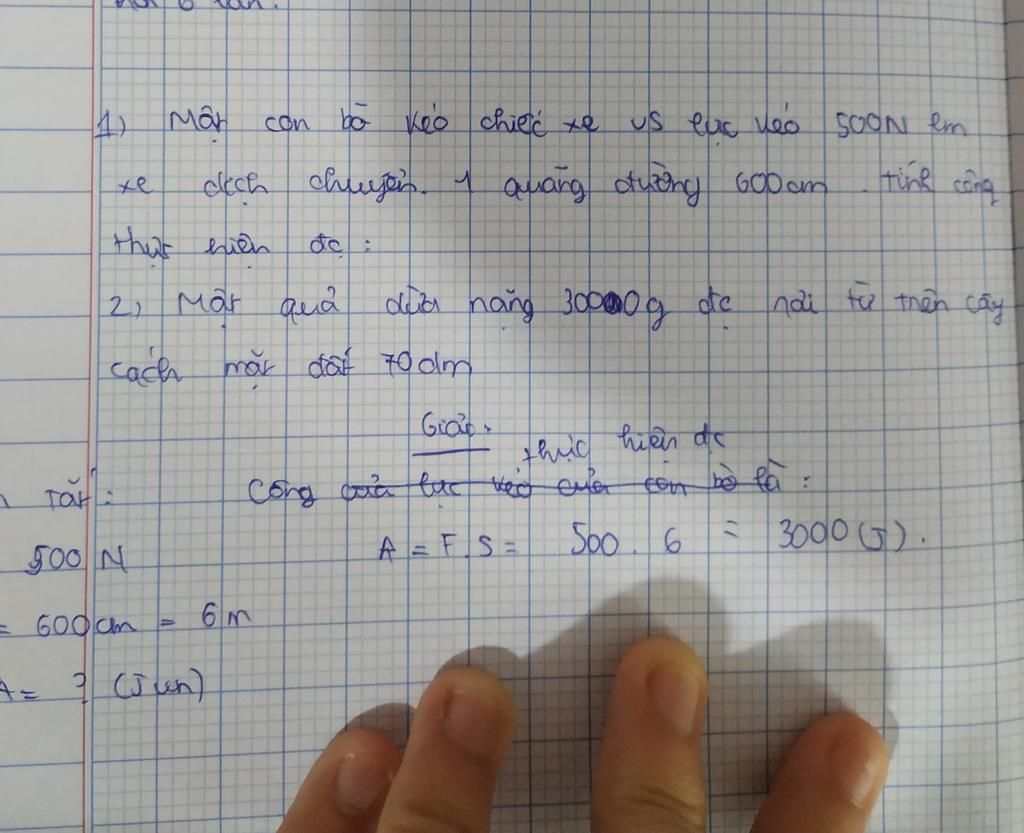 1) Một con bò kéo chiếc xe vs lực kéo 500N làm
xe dịch chuyển 1 quãng đường 600cm. tính công
thực hiện đc :
2) Một quả dừa nặng 30000g đc rơi từ trên cây
cách mặt đất 70dm
Giải
thực hiện đc
Tắt : Công của lực kéo của con bò là :
500 N A = F.S = 500 . 6 = 3000 (J).
= 600cm = 6m
A = ? (Jun)